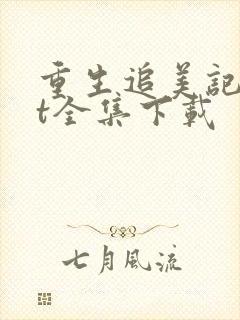 重生追美記
t全集下載
七月風流